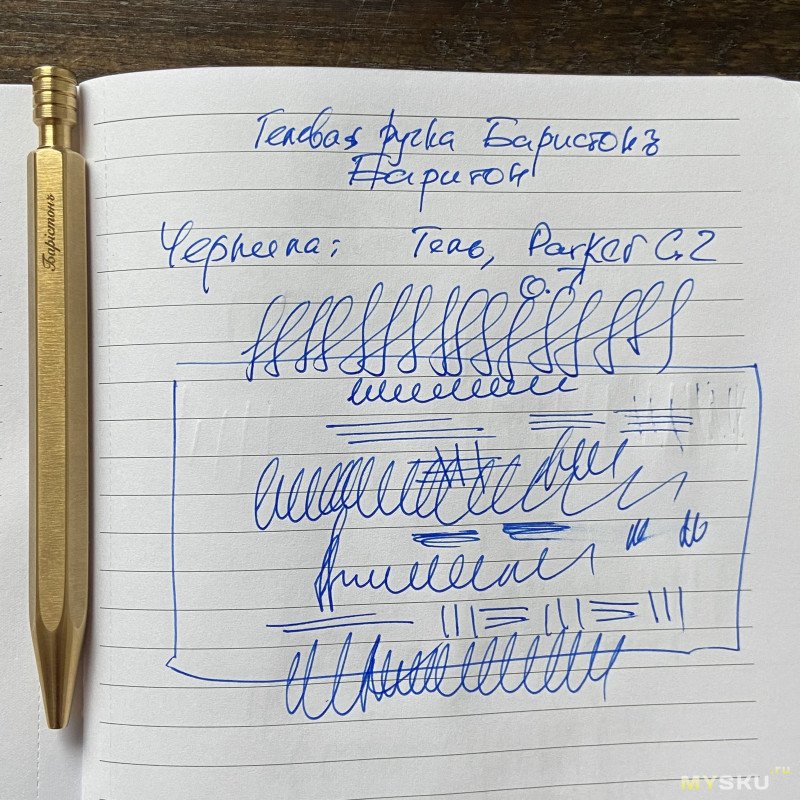 Гелевая ручка Баристонъ
Баритон
Чернила: Гель, Parker G.2
0.7
Барiстонъ
MYSKU.ru